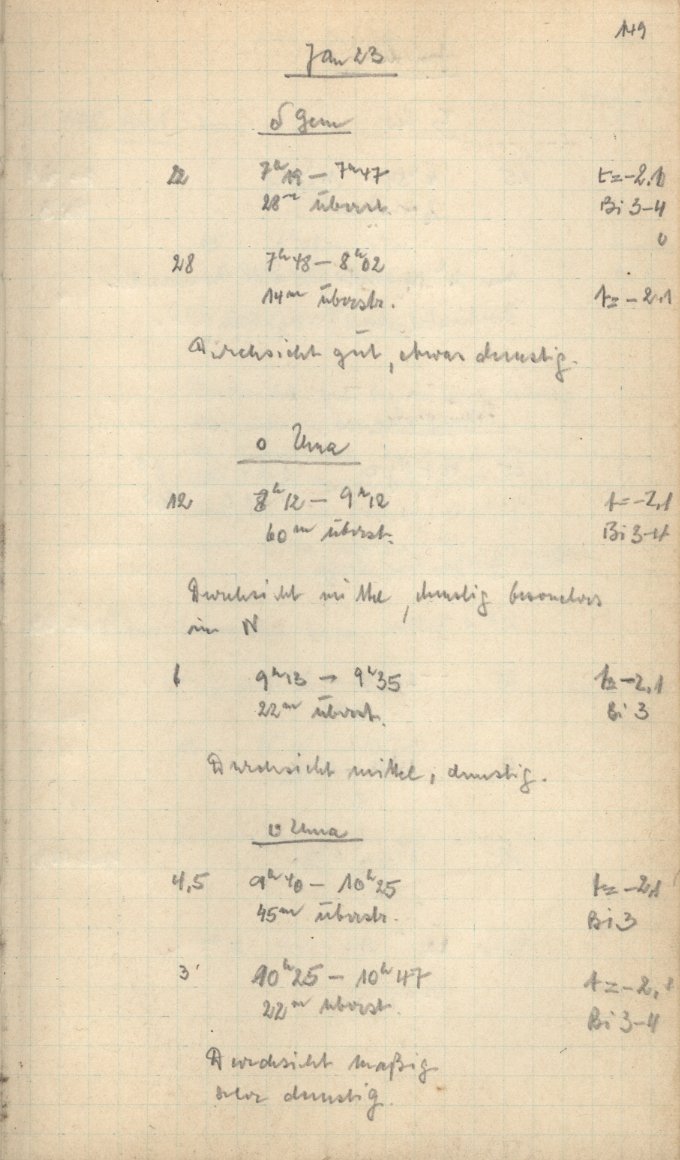 149
Jan 23
δ Gem
22 7h19 – 7h47 t=-2.1
28m überst. Bi 3-4
28 7h48 – 8h02
14m überstr. t=-2.1
Durchsicht gut, etwas dunstig.
o Uma
12 8h12 – 9h12 t=-2,1
60m überst. Bi 3-4
Durchsicht mittel, dunstig besonders
im N
9h13 – 9h35 t=-2,1
22m überst. Bi 3
Durchsicht mittel, dunstig.
υ Uma
4,5 9h40 – 10h25 t=-2,1
45m überstr. Bi 3
3 10h25 – 10h47 t=-2,
22m überst. Bi 3-4
Durchsicht mäßig
sehr dunstig.